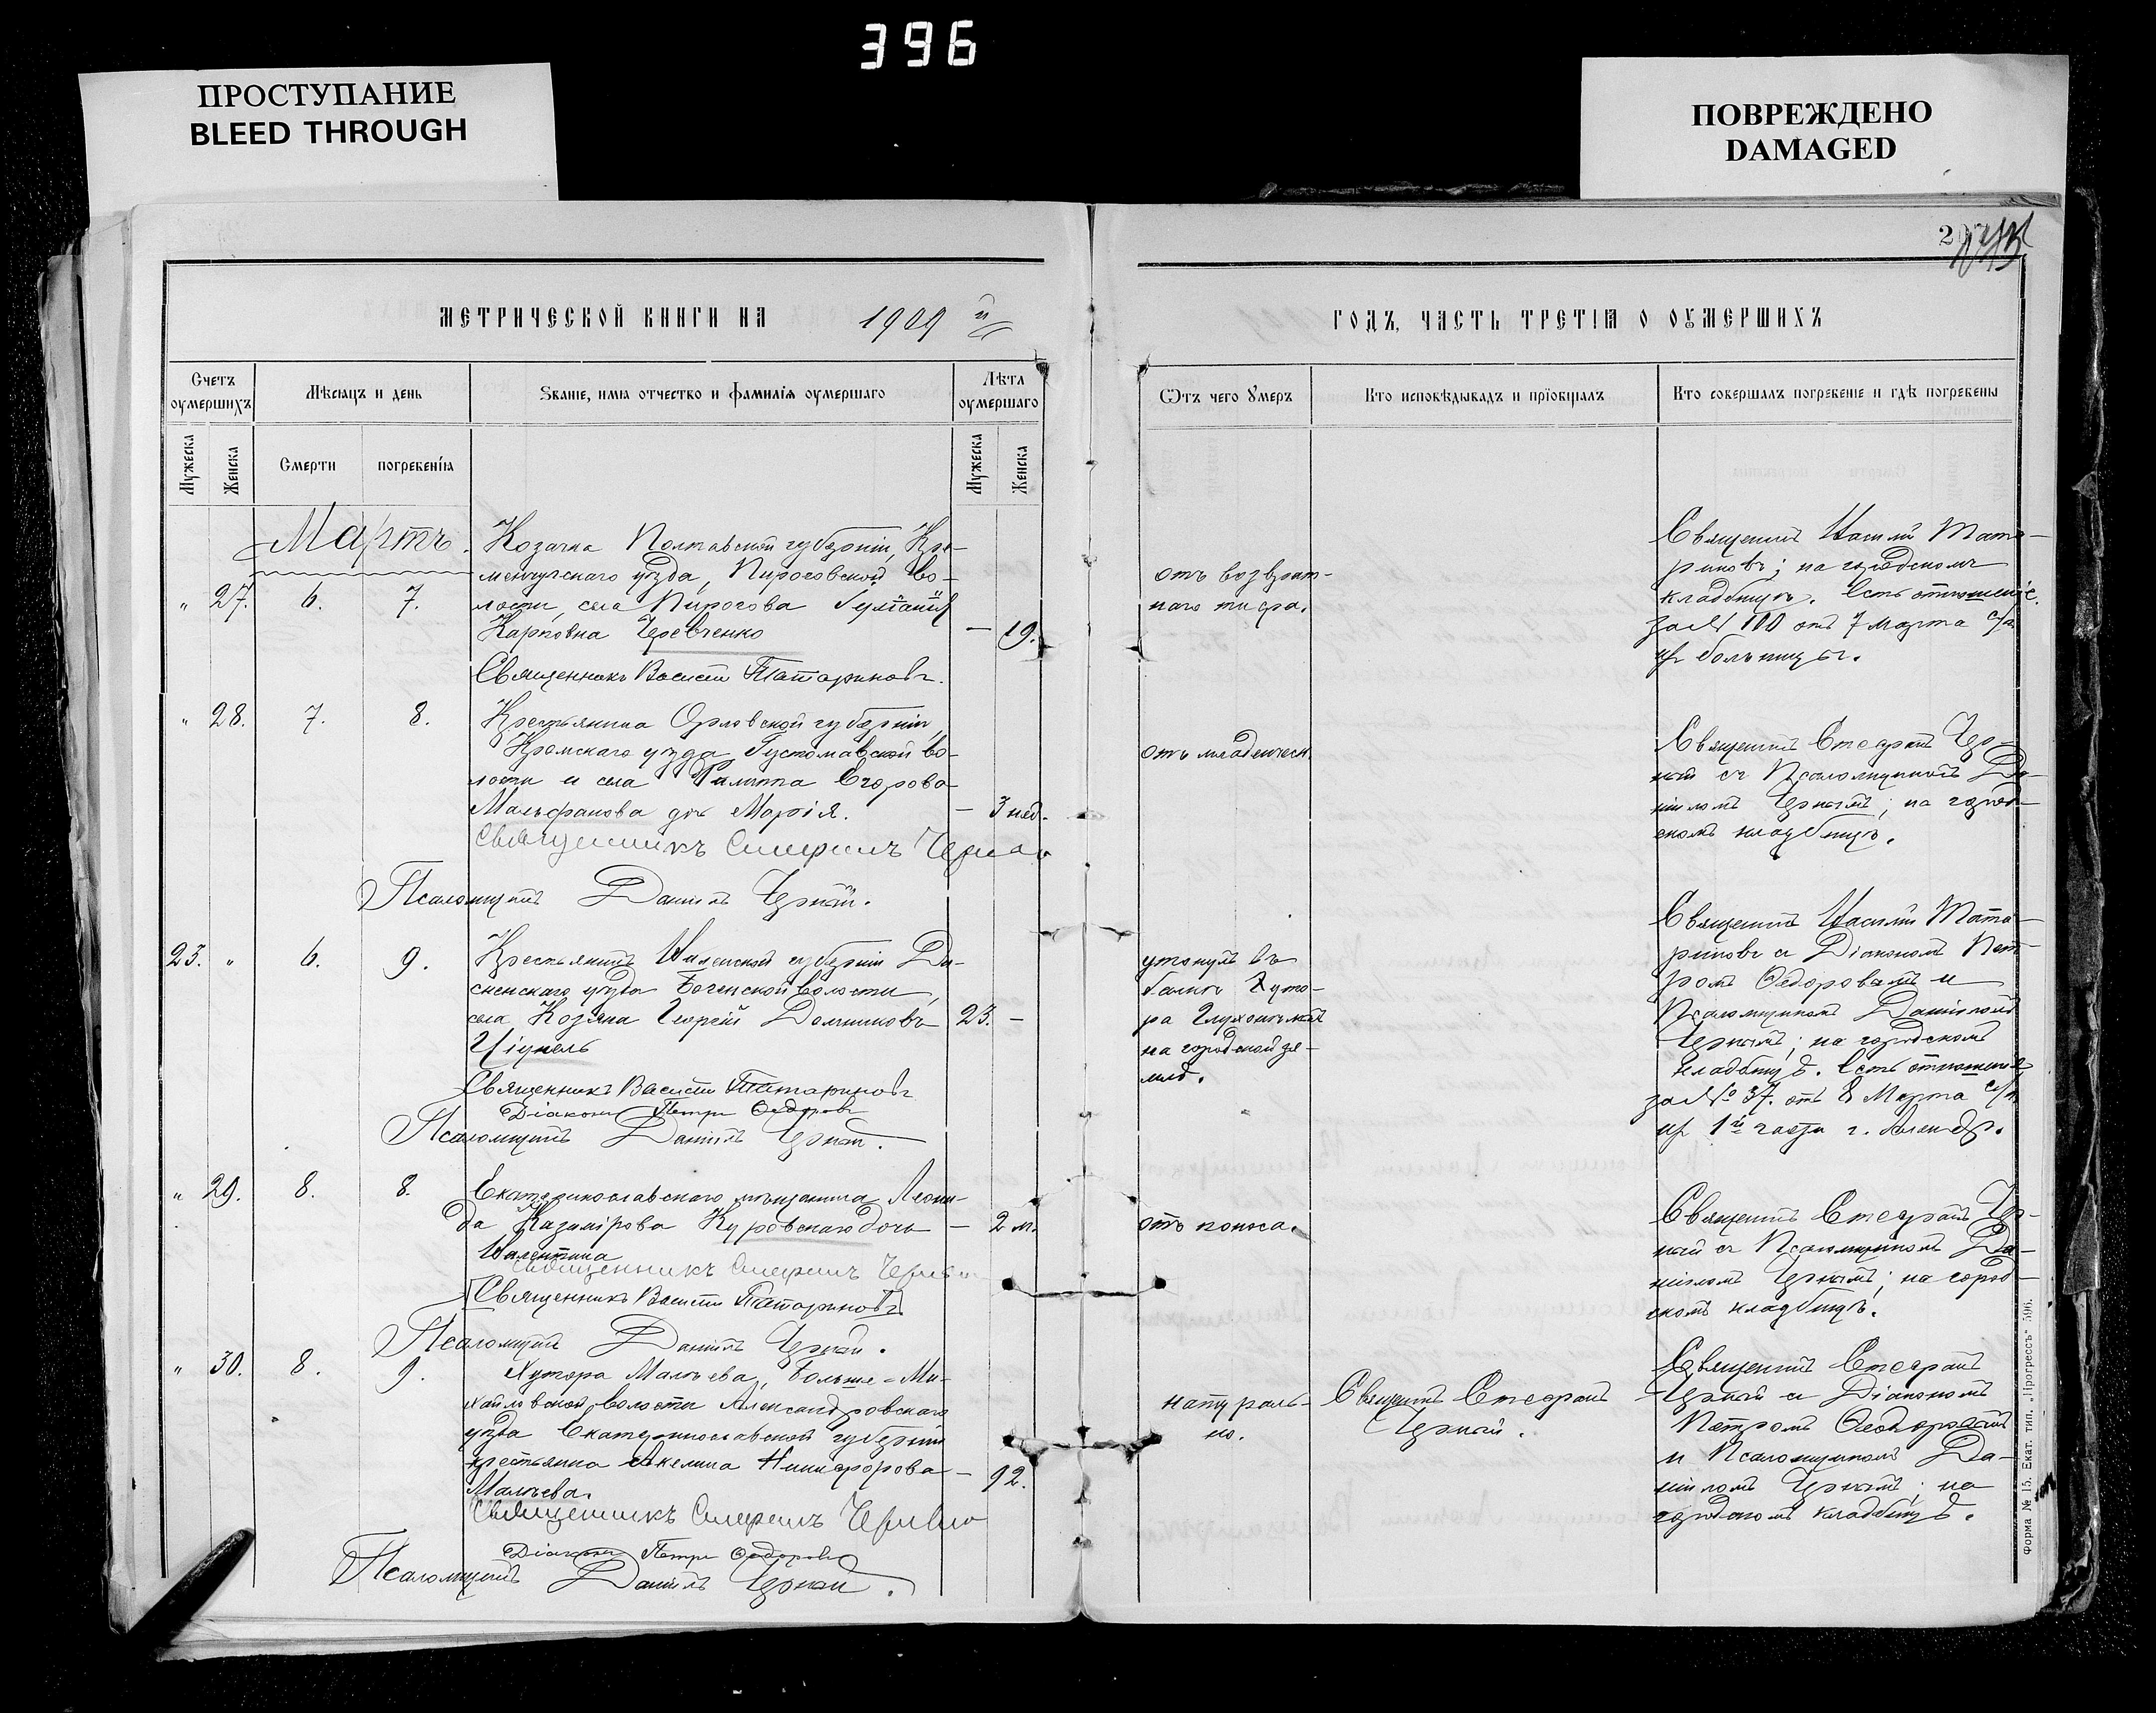 396
ПРОСТУПАНИЕ
BLEED THROUGH
ПОВРЕЖДЕНО
DAMAGED
МЕТРИЧЕСКОЙ КНИГИ НА 1909 й
ГОДЪ, ЧАСТЬ ТРЕТІЯ О ОУМЕРШИХЪ
Счетъ оумершихъ
Мѣсяцъ и день
Званіе, имя отчество и фамилія оумершаго
Лѣта оумершаго
Мужеска
Женска
Смерти
погребенія
Мужеска
Женска
Ѿтъ чего Умеръ
Кто исповѣдывадъ и пріобщалъ
Кто совершалъ погребеніе и гдѣ погребены
Мартъ.
Козачка Полтавской губерніи, Кре-
менчугскаго уѣзда, Пироговской во-
" 27. 6. 7. лости, села Пирогова
Карповна Шевченко — 19.
Священникъ Василій Татариновъ.
отъ возврат-
наго тифа.
Священникъ Василій Тата-
риновъ; на городскомъ
кладбищѣ. Есть отношеніе
за № 100 отъ 7 марта с/г
из больницы.
" 28. 7. 8. Крестьянина Орловской губерніи,
Кромскаго уѣзда, Густомавской во-
лости и села Филиппа Егорова
дочь Марія. — 3 нед.
Священникъ Стефанъ Черный
Псаломщикъ Даніилъ Черный.
отъ младенческ.
Священникъ Стефанъ Чер-
ный съ Псаломщикомъ Да-
ніиломъ Чернымъ; на город-
скомъ кладбищѣ.
23. " 6. 9. Крестьянинъ Виленской губерніи Ди-
сненскаго уѣзда Богинской волости,
села Козяна Георгій 23. —
Священникъ Василій Татариновъ
Діаконъ Петръ Федоровъ
Псаломщикъ Даніилъ Черный.
утонулъ въ
балкѣ Хуто-
ра
на городской зе-
млѣ.
Священникъ Василій Тата-
риновъ съ Діакономъ Пет-
ромъ Федоровымъ и
Псаломщикомъ Даніиломъ
Чернымъ; на городскомъ
кладбищѣ. Есть отношеніе
за № 37. отъ 8 Марта с/г.
из 1й части г.
" 29. 8. 8. Екатеринославскаго мѣщанина Леони-
да Казимірова Куровскаго дочь — 2 м.
Валентина
Священникъ Стефанъ Черный
Священникъ Василій Татариновъ
Псаломщикъ Даніилъ Черный.
отъ поноса.
Священникъ Стефанъ Чер-
ный съ Псаломщикомъ Да-
ніиломъ Чернымъ; на город-
скомъ кладбищѣ.
" 30. 8. 9. Хутора Малѣева, Больше-Ми-
хайловской волости Александровскаго
уѣзда Екатеринославской губерніи
крестьянка Акелина Никифорова — 92.
Малѣева.
Священникъ Стефанъ Черный
Діаконъ Петръ Федоровъ
Псаломщикъ Даніилъ Черный.
натураль-
но.
Священникъ Стефанъ
Черный.
Священникъ Стефанъ
Черный съ Діакономъ
Петромъ Федоровымъ
и Псаломщикомъ Да-
ніиломъ Чернымъ; на
городскомъ кладбищѣ.
Форма № 15. Екат. тип. „Прогрессъ" 596.